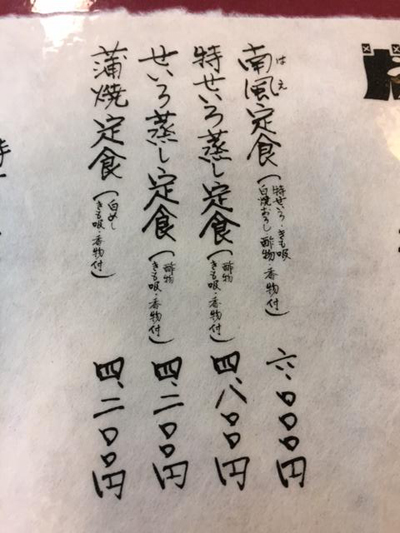 南風定食(特せいろ・きも吸 白焼おろし 酢物 香物付) 六、000円
はえ
特せいろ蒸し定食(酢物 きも吸・香物付) 四、八00円
せいろ蒸し定食(酢物 きも吸・香物付) 四、二00円
蒲焼定食(白めし きも吸・香物付) 四、二00円